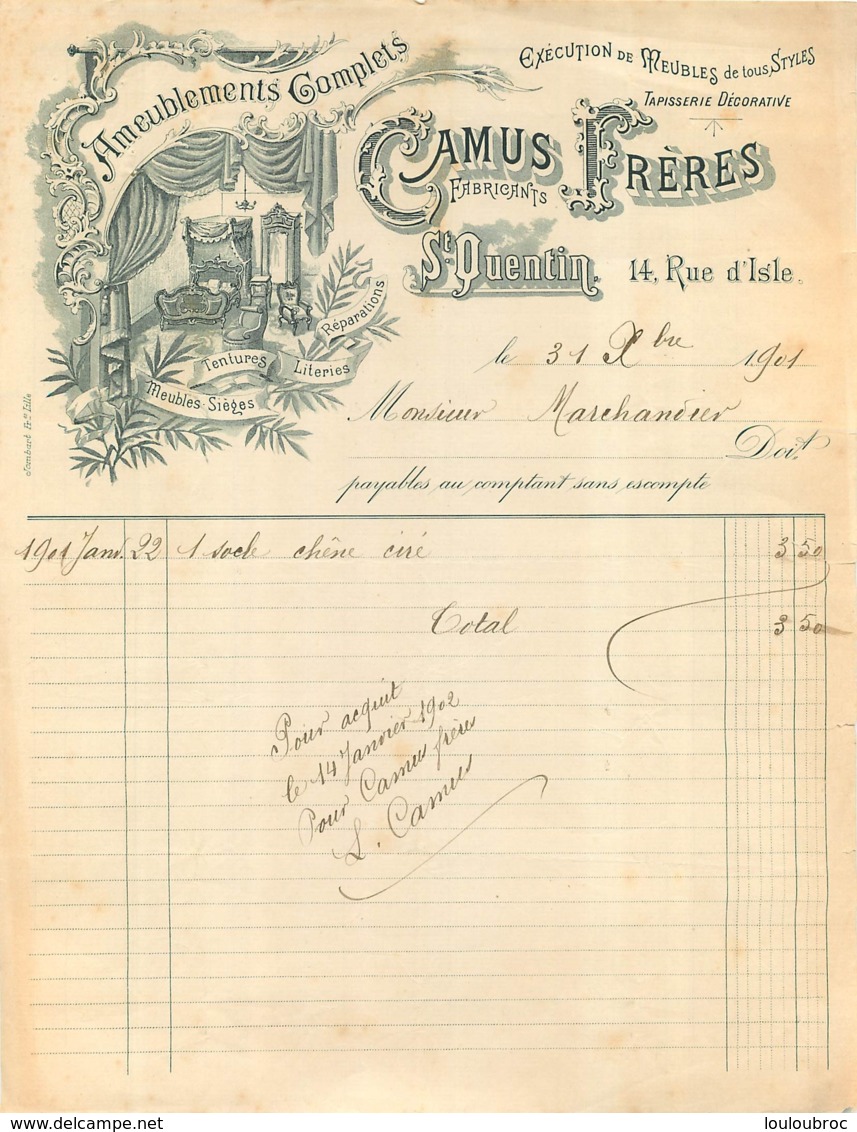 Ameublements Complets
Exécution de Meubles de tous Styles
Tapisserie Décorative
Camus Frères
Fabricants
St. Quentin. 14, Rue d'Isle.
Réparations
Tentures Literies
Meubles-Sièges
le 31 Xbre 1901
Monsieur Marchandier
Doit
payables au comptant sans escompte
1901 Janv. 22 1 socle chêne ciré 3 50
Total 3 50
Pour acquit
le 14 Janvier 1902
Pour Camus frères
L. Camus
Jombart Fres Lille
delcampe.net
louloubroc